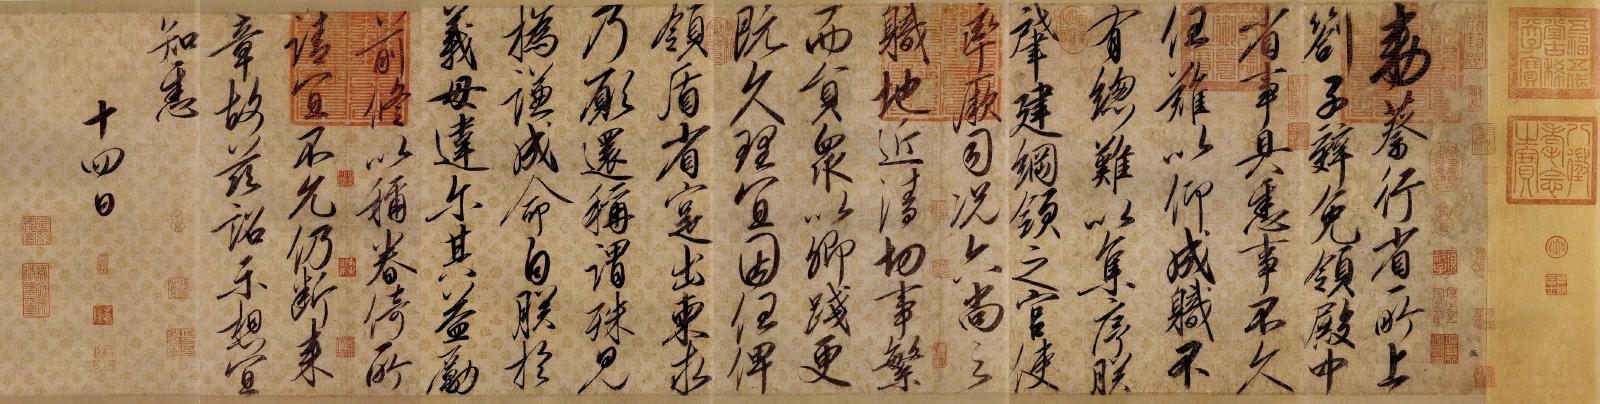 五福五代堂古稀天子寶
八徵耄念之寶
敕蔡行省所上
劄子辭免領殿中
省事具悉事不久
任難以仰成職不
有總難以集序朕
肇建綱領之官使
率厥司況六尚之
職地近清切事繁
而員眾以卿踐更
既久理宜因任俾
領盾省寔出柬求
乃願還稱謂殊見
撝謙成命自朕於
義毋違尔其益勵
前修以稱眷倚所
請宜不允仍斷來
章故茲詔示想宜
知悉
十四日